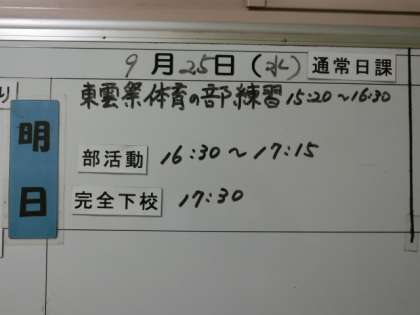 9月25日(水) 通常日課
東雲祭体育の部練習15:20~16:30
明日
部活動 16:30~17:15
完全下校 17:30